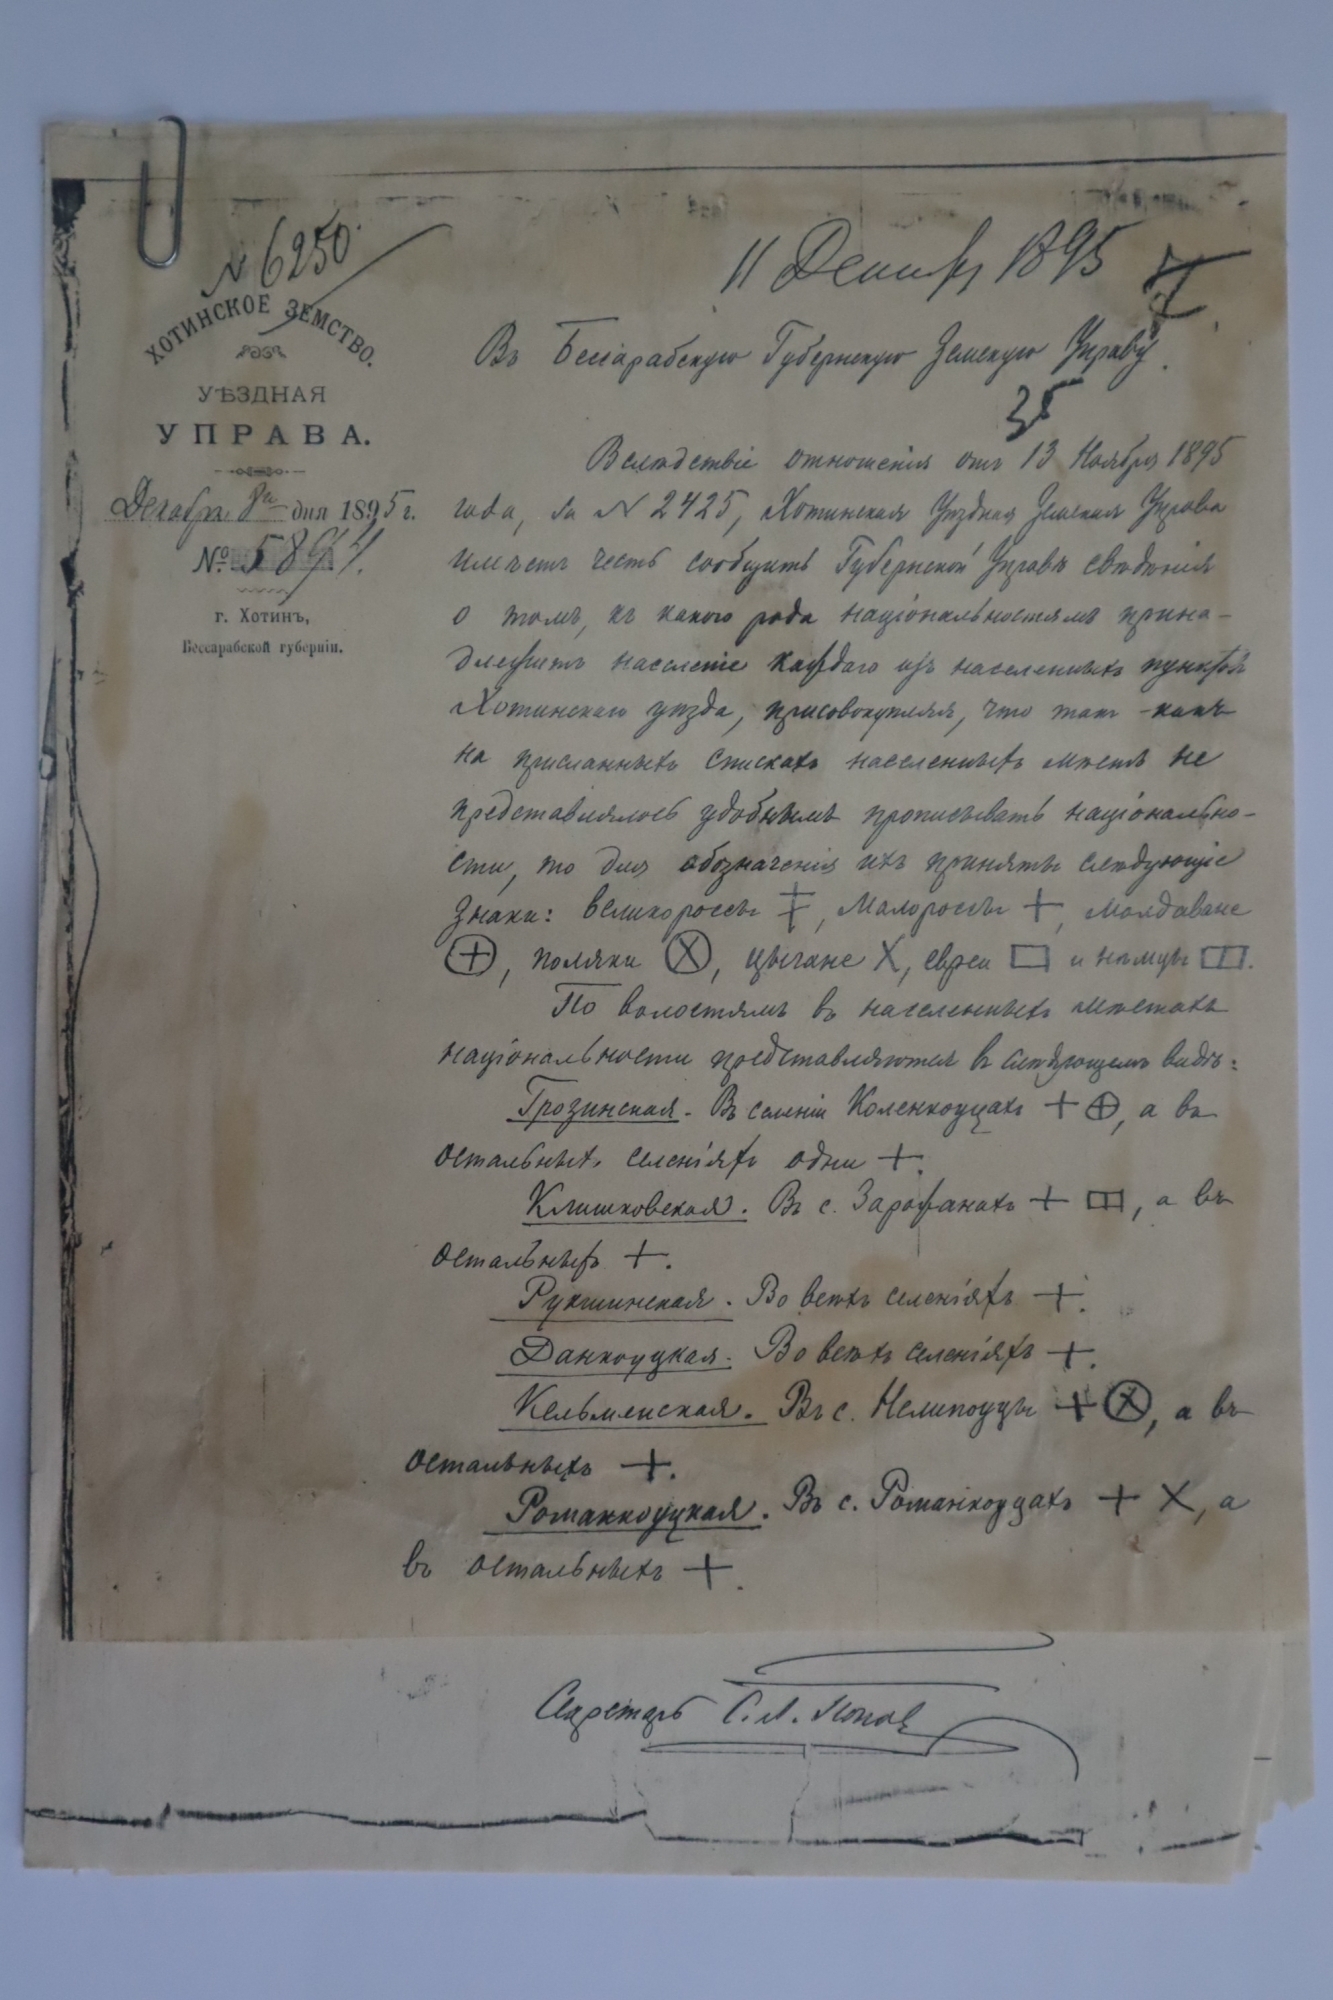 № 6250
ХОТИНСКОЕ ЗЕМСТВО.
УѢЗДНАЯ
УПРАВА.
Декабря 8го дня 1895 г.
№ 5894.
г. Хотинъ,
Бессарабской губерніи.
11 Декабря 1895
Въ Бессарабскую Губернскую Земскую Управу.
35
Вслѣдствіе отношенія отъ 13 Ноября 1895
года, за № 2425, Хотинская Уѣздная Земская Управа
имѣетъ честь сообщить Губернской Управѣ свѣдѣнія
о томъ, къ какого рода національностямъ прина-
длежитъ населеніе каждаго изъ населенныхъ пунктовъ
Хотинскаго уѣзда, присовокупляя, что такъ-какъ
на присланныхъ спискахъ населенныхъ мѣстъ не
представлялось удобнымъ прописывать національно-
сти, то для обозначенія ихъ приняты слѣдующіе
знаки: великороссы ‡, малороссы +, молдаване
⊕, поляки ⊗, цыгане X, евреи ▭ и нѣмцы ◫.
По волостямъ въ населенныхъ мѣстахъ
національности представляются въ слѣдующемъ видѣ:
Грозинская. Въ селеніи Коленкоуцахъ + ⊕, а въ
остальныхъ селеніяхъ одни +.
Клишковская. Въ с. Зарофанахъ + ◫, а въ
остальныхъ +.
Рукшинская. Во всѣхъ селеніяхъ +.
Данкоуцкая. Во всѣхъ селеніяхъ +.
Кельменская. Въ с. Нелипоуцы + ⊗, а въ
остальныхъ +.
Романкоуцкая. Въ с. Романкоуцахъ + X, а
въ остальныхъ +.
Секретарь